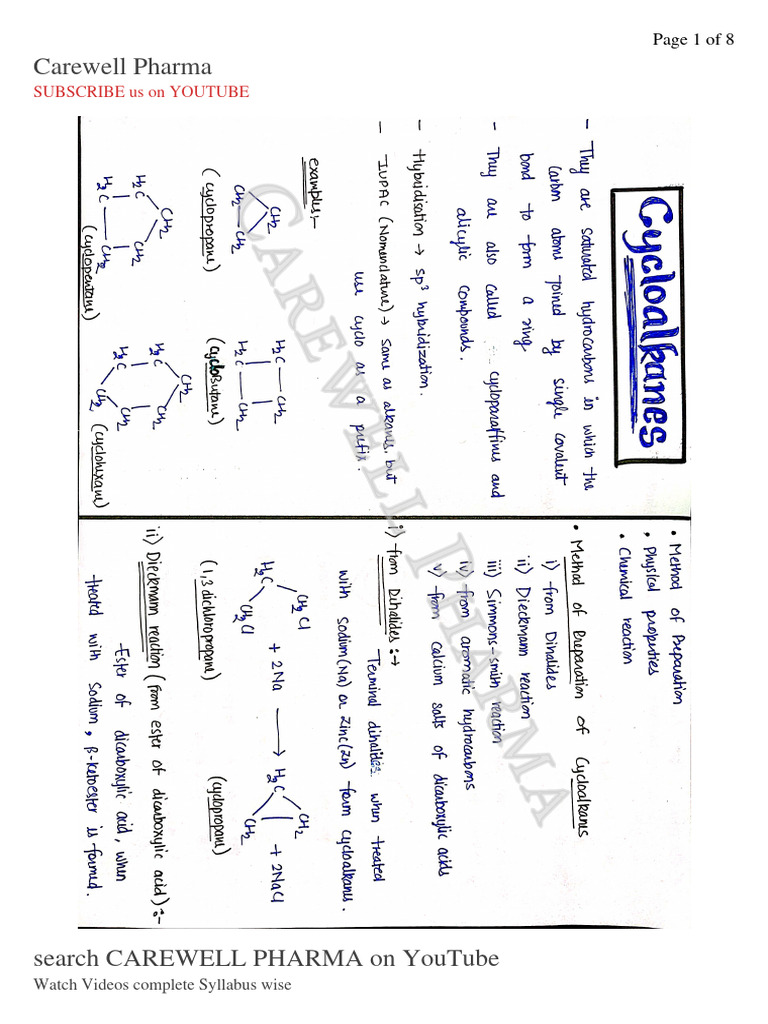 Page 1 of 8
Carewell Pharma
SUBSCRIBE us on YOUTUBE
Cycloalkanes
- They are saturated hydrocarbons in which the
carbon atoms joined by single covalent
bond to form a ring.
- They are also called cycloparaffines and
alicylic compounds.
- Hybridisation → sp³ hybridization.
- IUPAC (Nomenclature) → Same as alkanes, but
use cyclo as a prefix.
examples:-
CH2
CH2 — CH2
(cyclopropane)
H2C — CH2
H2C — CH2
(cycloButane)
CH2
H2C CH2
H2C — CH2
(cyclopentane)
CH2
H2C CH2
H2C CH2
CH2
(cyclohexane)
• Method of Preparation
• Physical properties
• Chemical reaction
• Method of Preparation of Cycloalkanes
i) from Dihalides
ii) Dieckmann reaction
iii) Simmons-smith reaction
iv) from aromatic hydrocarbons
v) from calcium salts of dicarboxylic acids
i) from Dihalides :→
Terminal dihalides when treated
with Sodium(Na) or Zinc(Zn) form cycloalkanes.
CH2Cl
H2C + 2Na → H2C CH2 + 2NaCl
CH2Cl CH2
(1,3 dichloropropane) (cyclopropane)
ii) Dieckmann reaction (from ester of dicarboxylic acid) :-
-Ester of dicarboxylic acid, when
treated with Sodium, β-ketoester is formed.
CAREWELL PHARMA
search CAREWELL PHARMA on YouTube
Watch Videos complete Syllabus wise